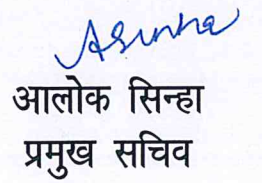 ASinha
आलोक सिन्हा
प्रमुख सचिव